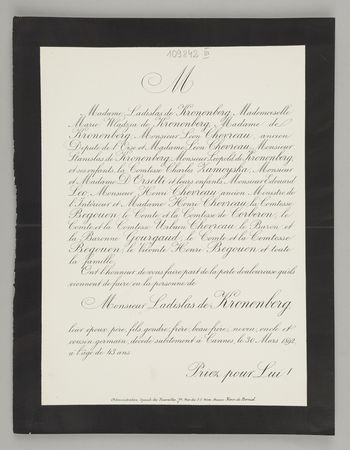 109842 III
M
Madame Ladislas de Kronenberg, Mademoiselle
Marie Wladzia de Kronenberg, Madame de
Kronenberg, Monsieur Léon Chevreau, ancien
Député de l'Oise et Madame Léon Chevreau, Monsieur
Stanislas de Kronenberg, Monsieur Léopold de Kronenberg
et ses enfants, la Comtesse Charles Zamoyska, Monsieur
et Madame D'Orsetti et leurs enfants, Monsieur Edouard
Leo, Monsieur Henri Chevreau, ancien Ministre de
l'Intérieur et Madame Henri Chevreau, la Comtesse
Begouen, le Comte et la Comtesse de Corberon, le
Comte et la Comtesse Urbain Chevreau, le Baron et
la Baronne Gourgaud, le Comte et la Comtesse
Begouen, le Vicomte Henri Begouen et toute
la famille,
Ont l'honneur de vous faire part de la perte douloureuse qu'ils
viennent de faire en la personne de
Monsieur Ladislas de Kronenberg
leur époux, père, fils, gendre, frère, beau-frère, neveu, oncle et
cousin-germain, décédé subitement à Cannes, le 30 Mars 1892,
à l'âge de 43 ans.
Priez pour Lui !
Administration Spéciale des Funérailles,